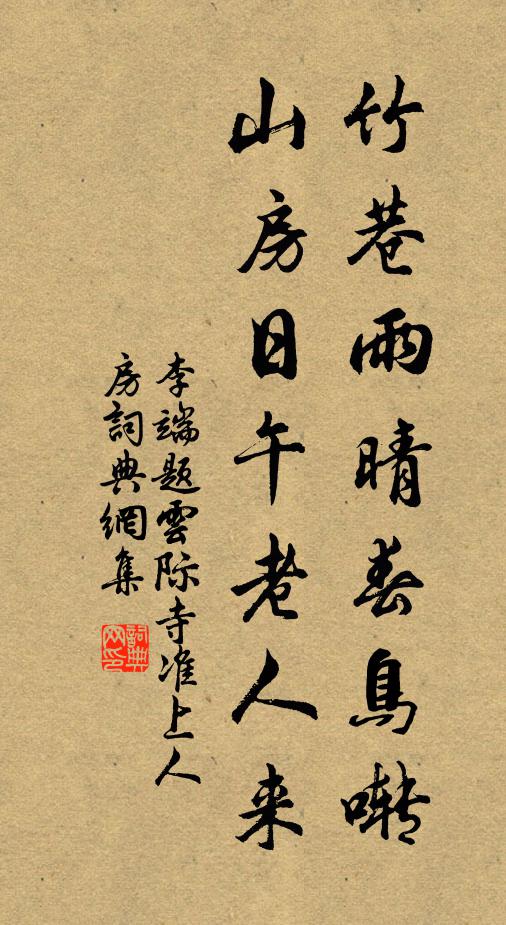 竹巷雨晴春鳥囀
山房日午老人来
李端題雲際寺准上人
房詞典網集
詞典
网印